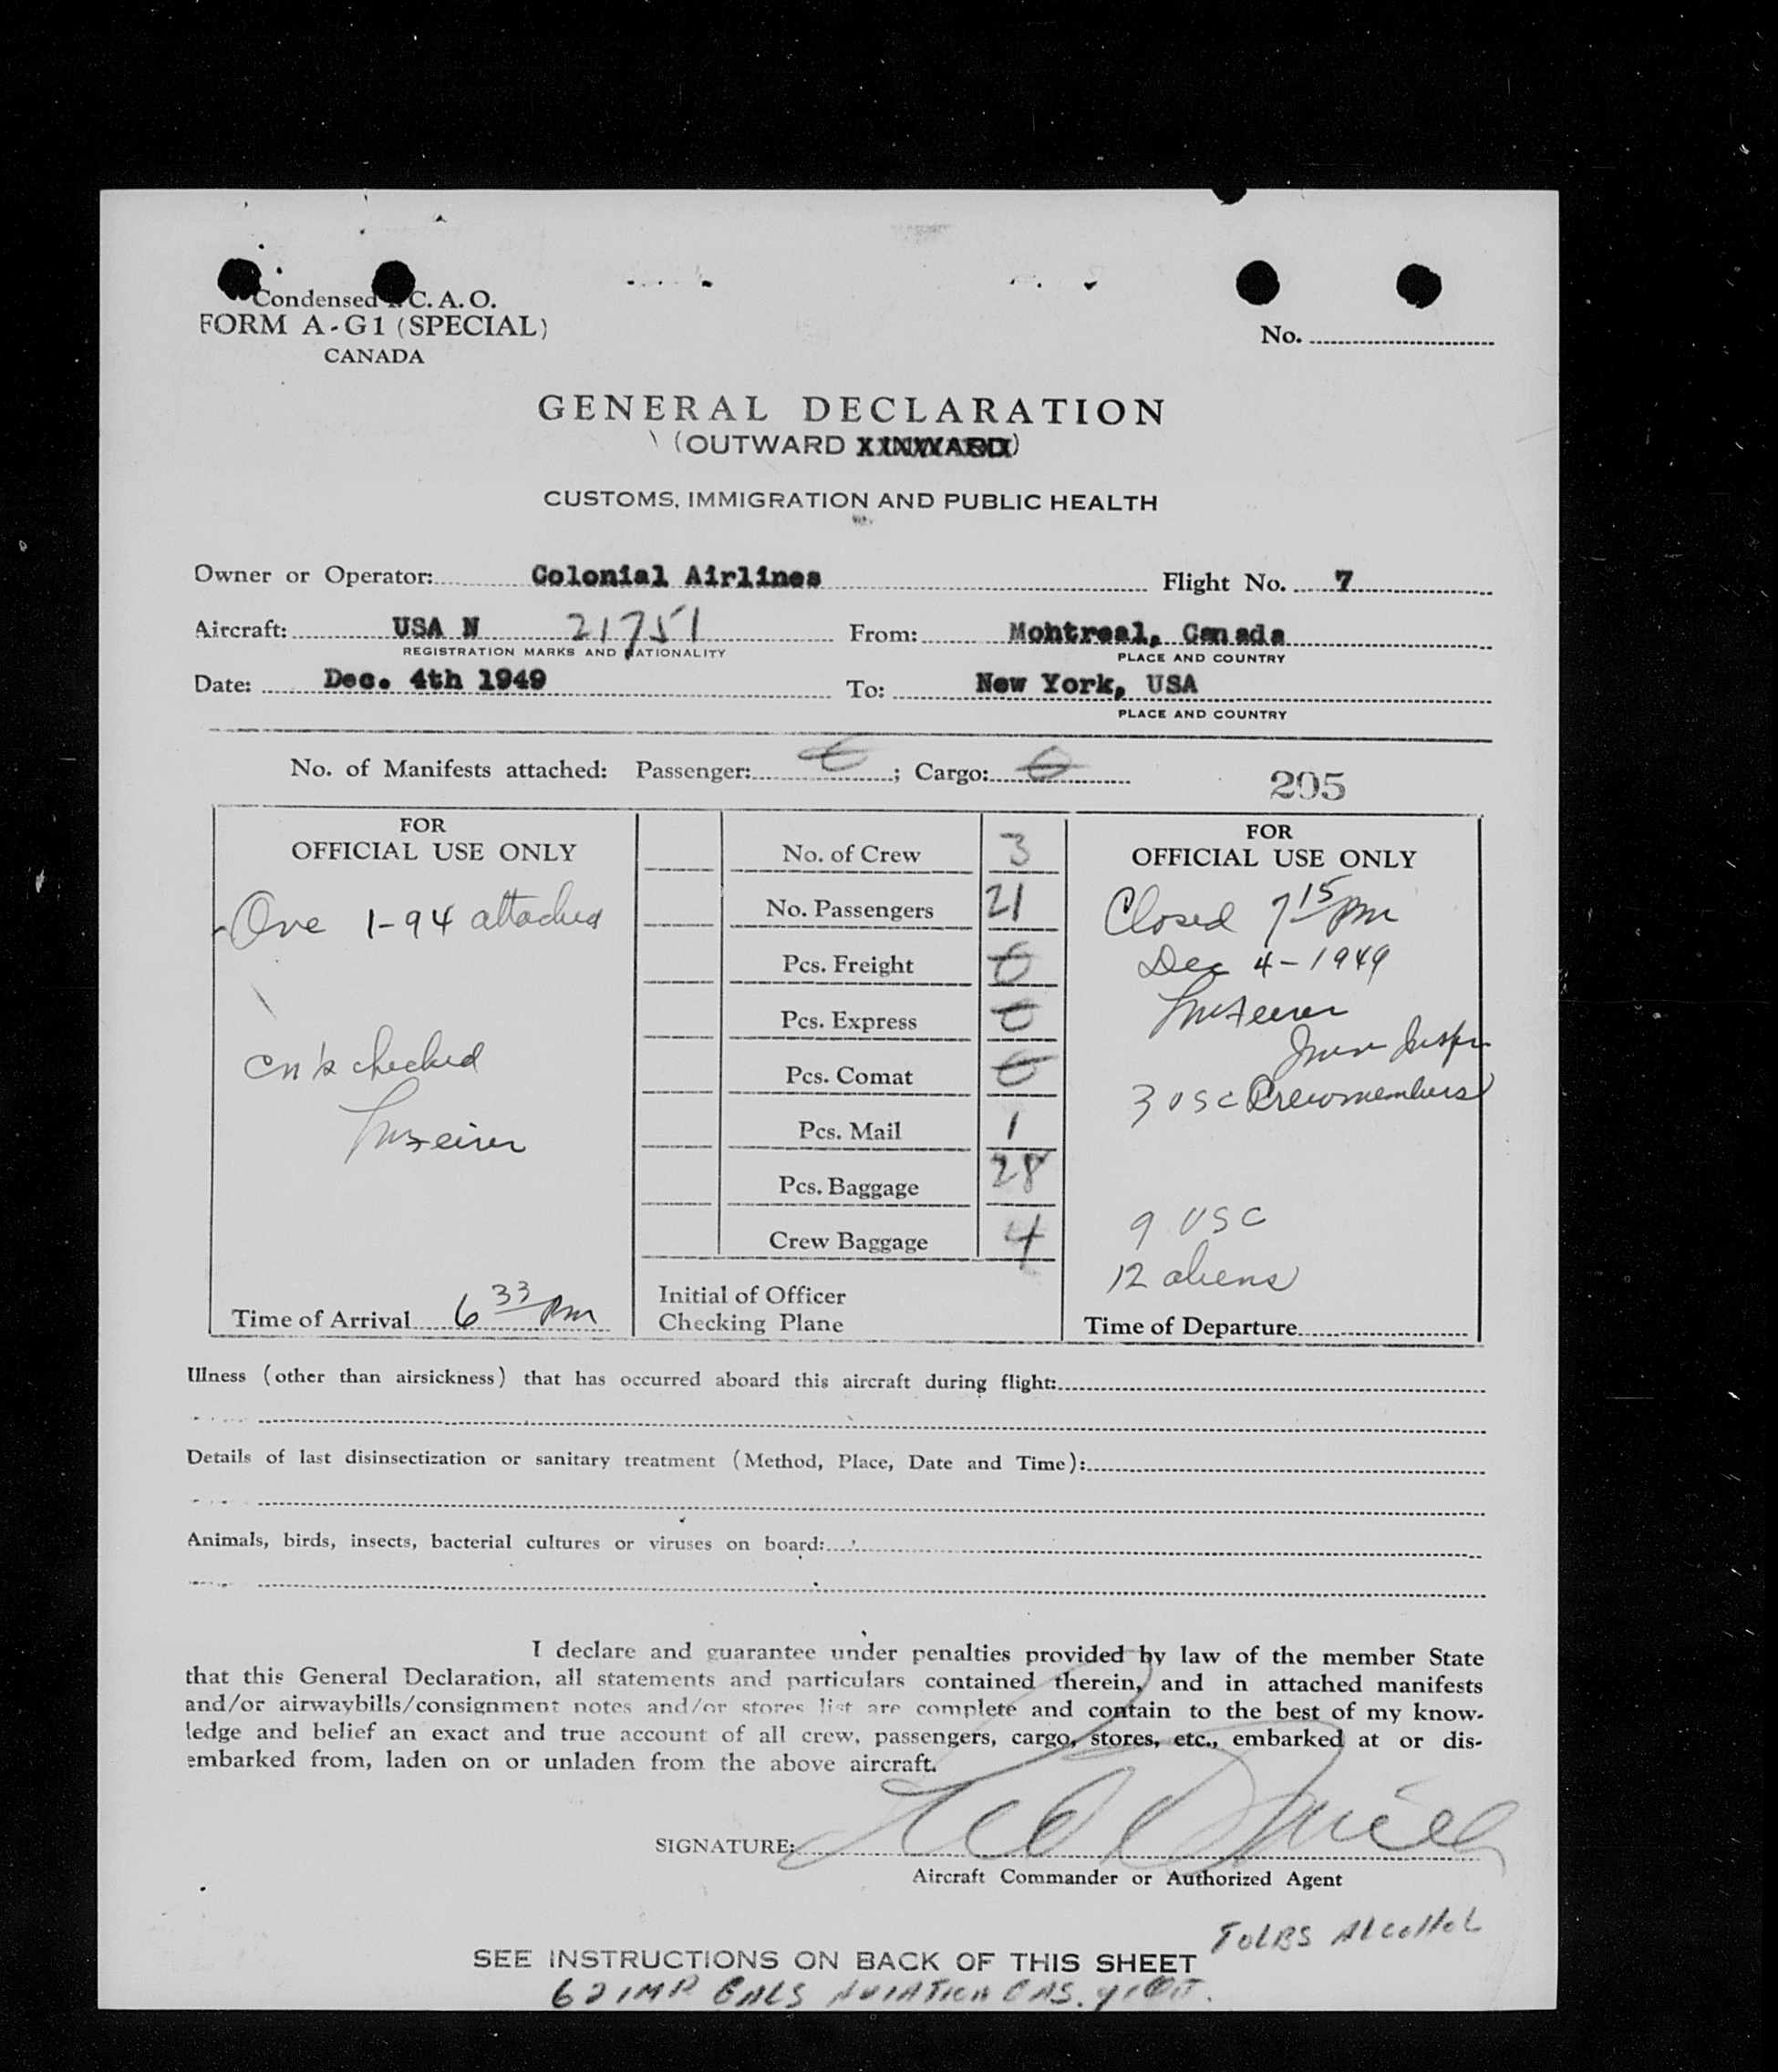 Condensed I. C. A. O.
FORM A-G1 (SPECIAL)
CANADA
No.
GENERAL DECLARATION
(OUTWARD XXNXXARDX)
CUSTOMS, IMMIGRATION AND PUBLIC HEALTH
Owner or Operator: Colonial Airlines Flight No. 7
Aircraft: USA N 21751 From: Mohtreal, Canada
REGISTRATION MARKS AND NATIONALITY PLACE AND COUNTRY
Date: Dec. 4th 1949 To: New York, USA
PLACE AND COUNTRY
No. of Manifests attached: Passenger: 0; Cargo: 0
295
FOR
OFFICIAL USE ONLY
One 1-94 attached
checked
Time of Arrival 6 33 Pm
No. of Crew 3
No. Passengers 21
Pcs. Freight 0
Pcs. Express 0
Pcs. Comat 0
Pcs. Mail 1
Pcs. Baggage 28
Crew Baggage 4
Initial of Officer
Checking Plane
FOR
OFFICIAL USE ONLY
Closed 7 15 Pm
Dec 4-1949
3 USC Crewmembers
9 USC
12 aliens
Time of Departure
Illness (other than airsickness) that has occurred aboard this aircraft during flight:
Details of last disinsectization or sanitary treatment (Method, Place, Date and Time):
Animals, birds, insects, bacterial cultures or viruses on board:
I declare and guarantee under penalties provided by law of the member State
that this General Declaration, all statements and particulars contained therein, and in attached manifests
and/or airwaybills/consignment notes and/or stores list are complete and contain to the best of my know-
ledge and belief an exact and true account of all crew, passengers, cargo, stores, etc., embarked at or dis-
embarked from, laden on or unladen from the above aircraft.
SIGNATURE:
Aircraft Commander or Authorized Agent
LBS Alcohol
SEE INSTRUCTIONS ON BACK OF THIS SHEET
62 IMP GALS AVIATION GAS.